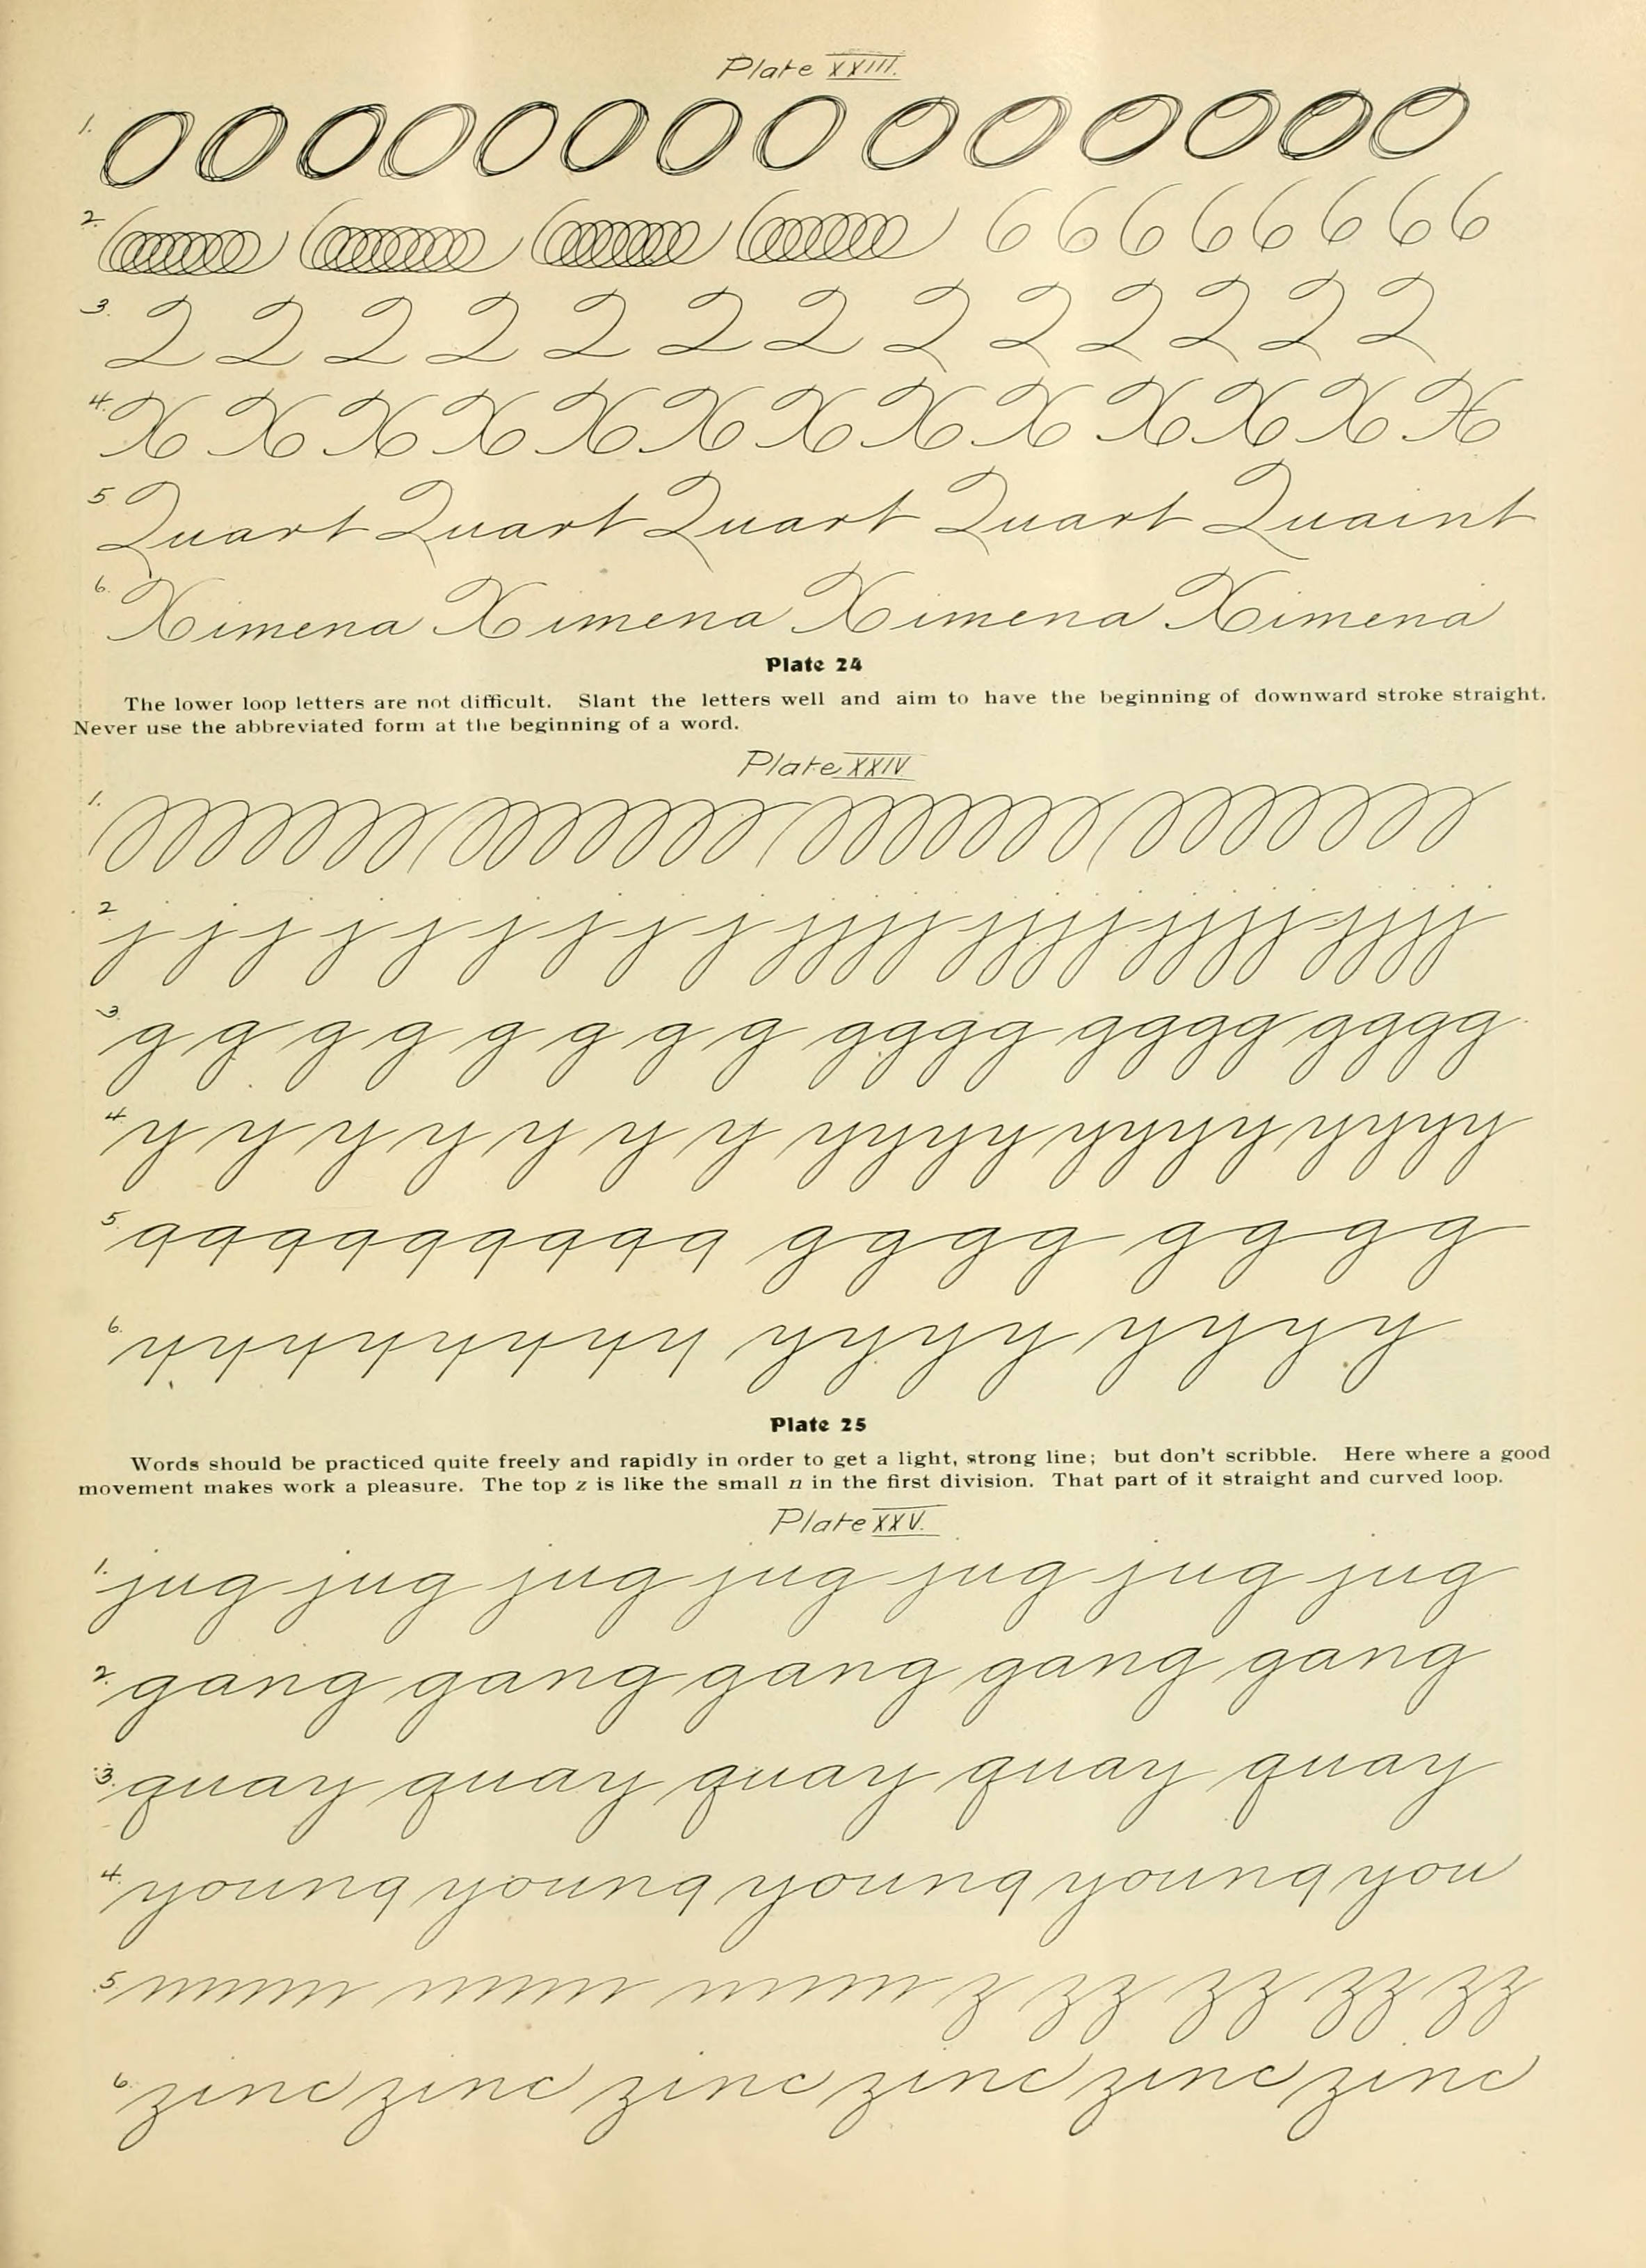 Plate XXIII.
1. O O O O O O O O O O O O O O
2. 6 6 6 6 6 6 6 6
3. 2 2 2 2 2 2 2 2 2 2 2 2 2
4. X X X X X X X X X X X X X
5 Quart Quart Quart Quart Quaint
6. Ximena Ximena Ximena Ximena
Plate 24
The lower loop letters are not difficult. Slant the letters well and aim to have the beginning of downward stroke straight.
Never use the abbreviated form at the beginning of a word.
Plate XXIV
1.
2 j j j j j j j j j jjjj jjjj jjjj jjjj
3. g g g g g g g g gggg gggg gggg
4 y y y y y y y yyyy yyyy yyyy
5. qqqqqqqqq gggg gggg
6. yyyyyyyy yyyy yyyy
Plate 25
Words should be practiced quite freely and rapidly in order to get a light, strong line; but don't scribble. Here where a good
movement makes work a pleasure. The top z is like the small n in the first division. That part of it straight and curved loop.
Plate XXV.
1. jug jug jug jug jug jug jug
2. gang gang gang gang gang
3. quay quay quay quay quay
4. young young young young you
5. z zz zz zz zz
6. zinc zinc zinc zinc zinc zinc